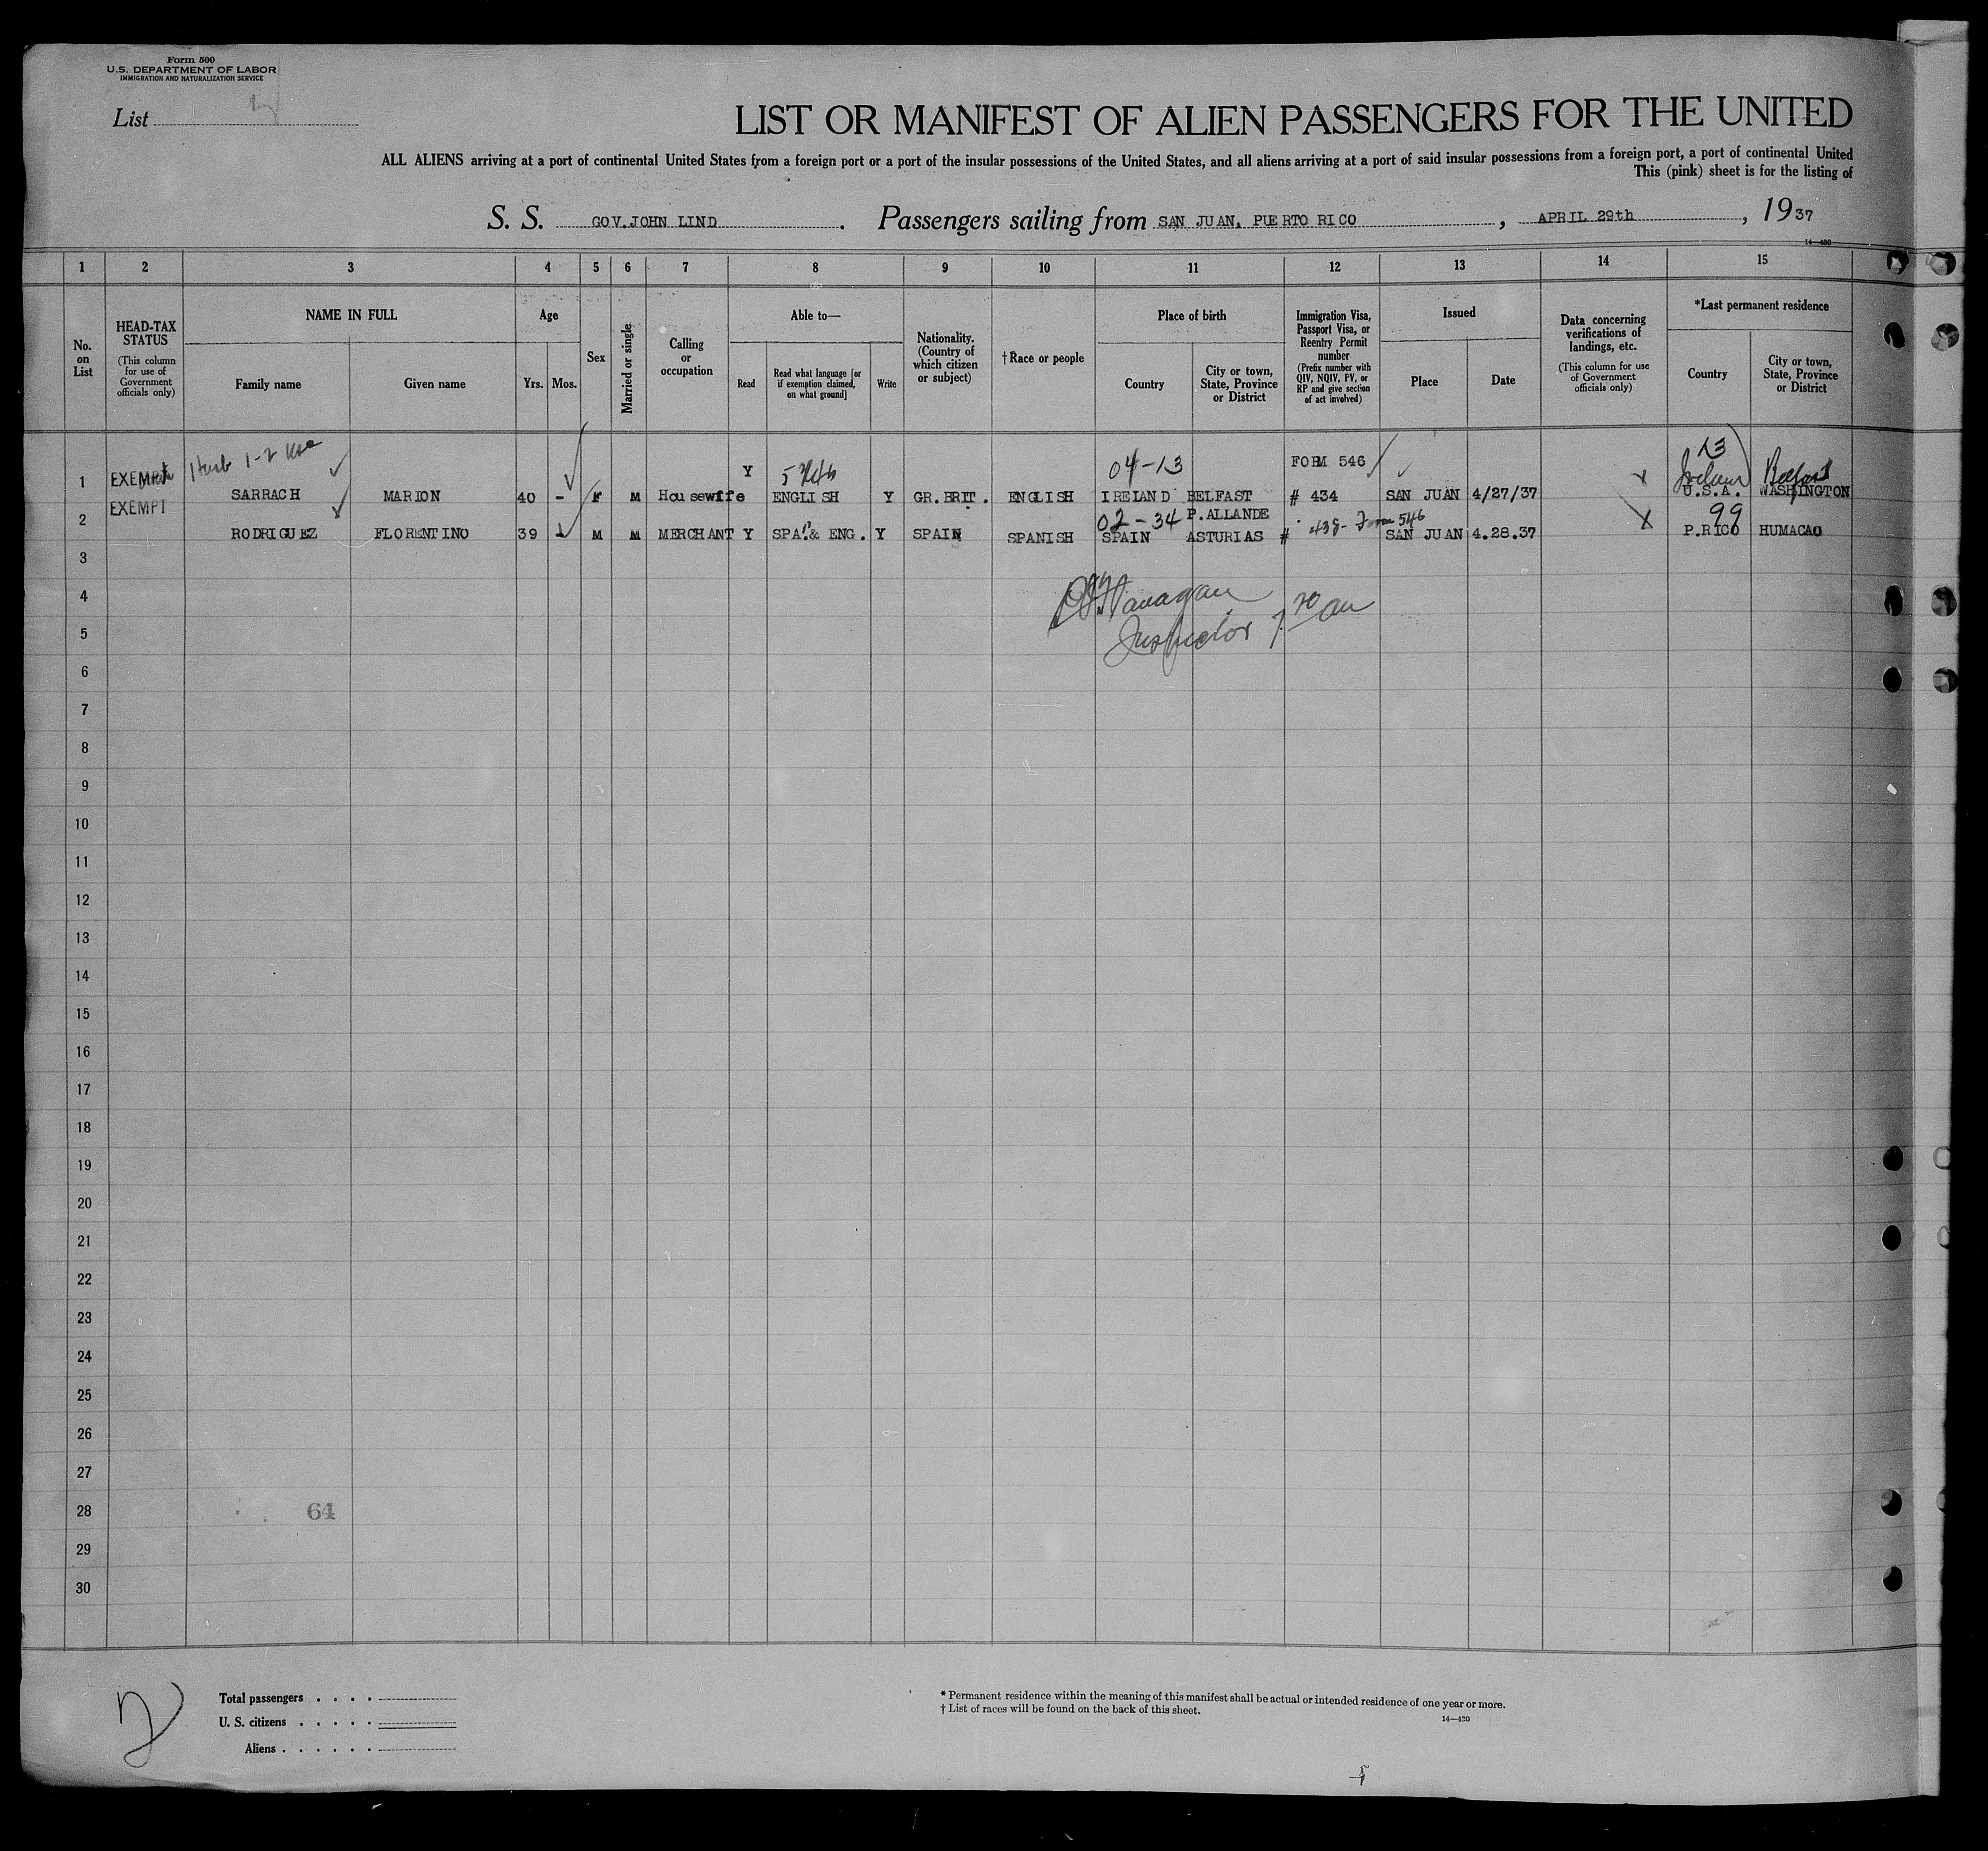 Form 500
U.S. DEPARTMENT OF LABOR
IMMIGRATION AND NATURALIZATION SERVICE
List
LIST OR MANIFEST OF ALIEN PASSENGERS FOR THE UNITED
ALL ALIENS arriving at a port of continental United States from a foreign port or a port of the insular possessions of the United States, and all aliens arriving at a port of said insular possessions from a foreign port, a port of continental United
This (pink) sheet is for the listing of
S. S. GOV.JOHN LIND. Passengers sailing from SAN JUAN, PUERTO RICO, APRIL 29th, 1937
14—430
1 2 3 4 5 6 7 8 9 10 11 12 13 14 15
No. on List
HEAD-TAX STATUS
(This column for use of Government officials only)
NAME IN FULL
Family name
Given name
Age
Yrs. Mos.
Sex
Married or single
Calling or occupation
Able to—
Read
Read what language [or if exemption claimed, on what ground]
Write
Nationality. (Country of which citizen or subject)
†Race or people
Place of birth
Country
City or town, State, Province or District
Immigration Visa, Passport Visa, or Reentry Permit number
(Prefix number with QIV, NQIV, PV, or RP and give section of act involved)
Issued
Place
Date
Data concerning verifications of landings, etc.
(This column for use of Government officials only)
*Last permanent residence
Country
City or town, State, Province or District
04-13 FORM 546 13
Belfast
1 EXEMPT SARRACH MARION 40 - F M Housewife Y ENGLISH Y GR.BRIT. ENGLISH IRELAND BELFAST # 434 SAN JUAN 4/27/37 U.S.A. WASHINGTON
02-34 P.ALLANDE 438- Form 546 99
2 EXEMPT RODRIGUEZ FLORENTINO 39 - M M MERCHANT Y SPA.& ENG. Y SPAIN SPANISH SPAIN ASTURIAS # SAN JUAN 4.28.37 P.RICO HUMACAO
3
4
Inspector
5
6
7
8
9
10
11
12
13
14
15
16
17
18
19
20
21
22
23
24
25
26
27
28 64
29
30
2
Total passengers . . . .
U. S. citizens . . . . .
Aliens . . . . . .
* Permanent residence within the meaning of this manifest shall be actual or intended residence of one year or more.
† List of races will be found on the back of this sheet.
14—430